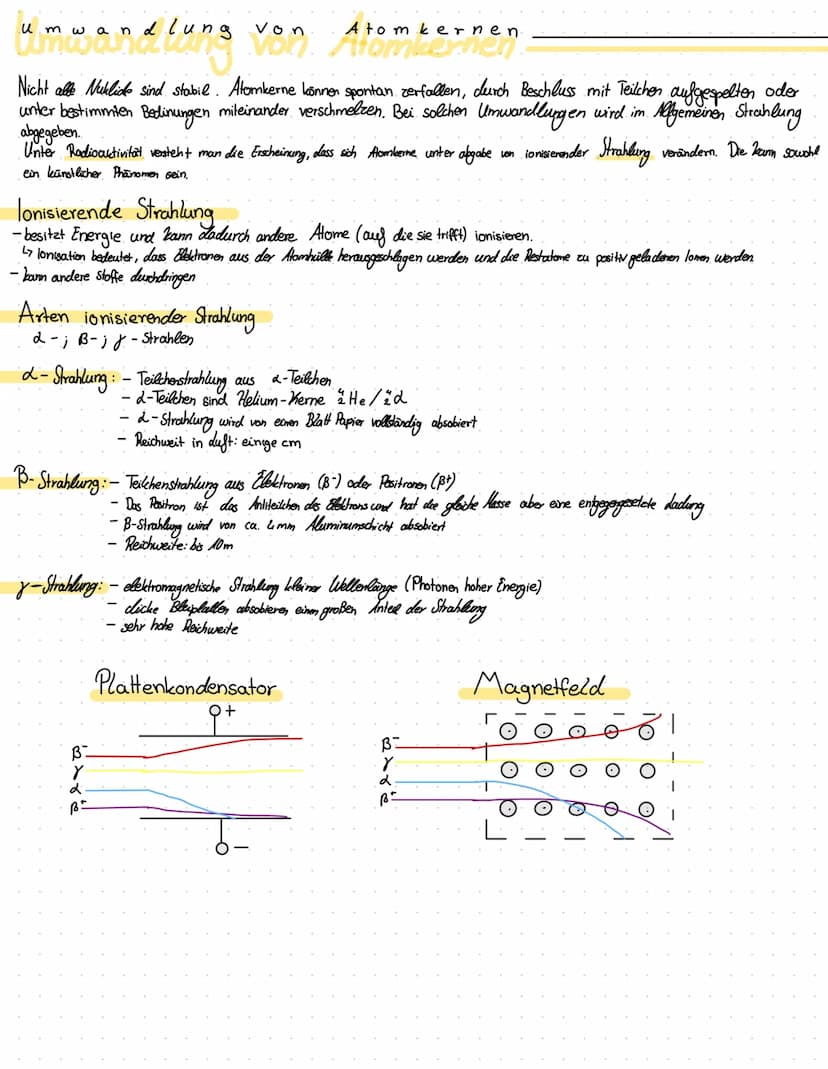 Umwandlung von Atomkernen
Nicht alle Nuklide sind stabil. Atomkerne können spontan zerfallen, durch Beschluss mit Teilchen aufgespelten oder
unter bestimmten Bedinungen mileinander verschmelzen. Bei solchen Umwandlungen wird im Allgemeinen Strahlung
abgegeben.
Unter Radioaktivität versteht man die Erscheinung, dass sich Atomkerne unter abgabe von ionisierender Strahlung verändern. Die kann sowohl
ein künstlicher Phänomen sein.
Ionisierende Strahlung
- besitzt Energie und kann dadurch andere Atome (auf die sie trifft) ionisieren.
↳ Ionisation bedeutet, dass Elektronen aus der Atomhülle herausgeschlagen werden und die Restatome zu positiv geladenen Ionen werden
- kann andere Stoffe durchdringen
Arten ionisierender Strahlung
α-; β-; γ-Strahlen
α-Strahlung: - Teilchenstrahlung aus α-Teilchen
- α-Teilchen sind Helium-Kerne ⁴₂He/⁴₂α
- α-Strahlung wird von einen Blatt Papier vollständig absobiert
- Reichweit in Luft: einige cm
β-Strahlung: - Teilchenstrahlung aus Elektronen (β⁻) oder Positronen (β⁺)
- Das Positron ist das Antiteilchen des Elektrons und hat die gleiche Masse aber eine entgegegesetzte Ladung
- β-Strahlung wird von ca. 4mm Aluminumschicht absobiert
- Reichweite: bis 10m
γ-Strahlung: - elektromagnetische Strahlung kleiner Wellenlänge (Photonen hoher Energie)
- dicke Bleiplatten absobieren einen großen Anteil der Strahlung
- sehr hohe Reichweite
Plattenkondensator
+
β⁻
γ
α
β⁺
−
Magnetfeld
β⁻
γ
α
β⁺